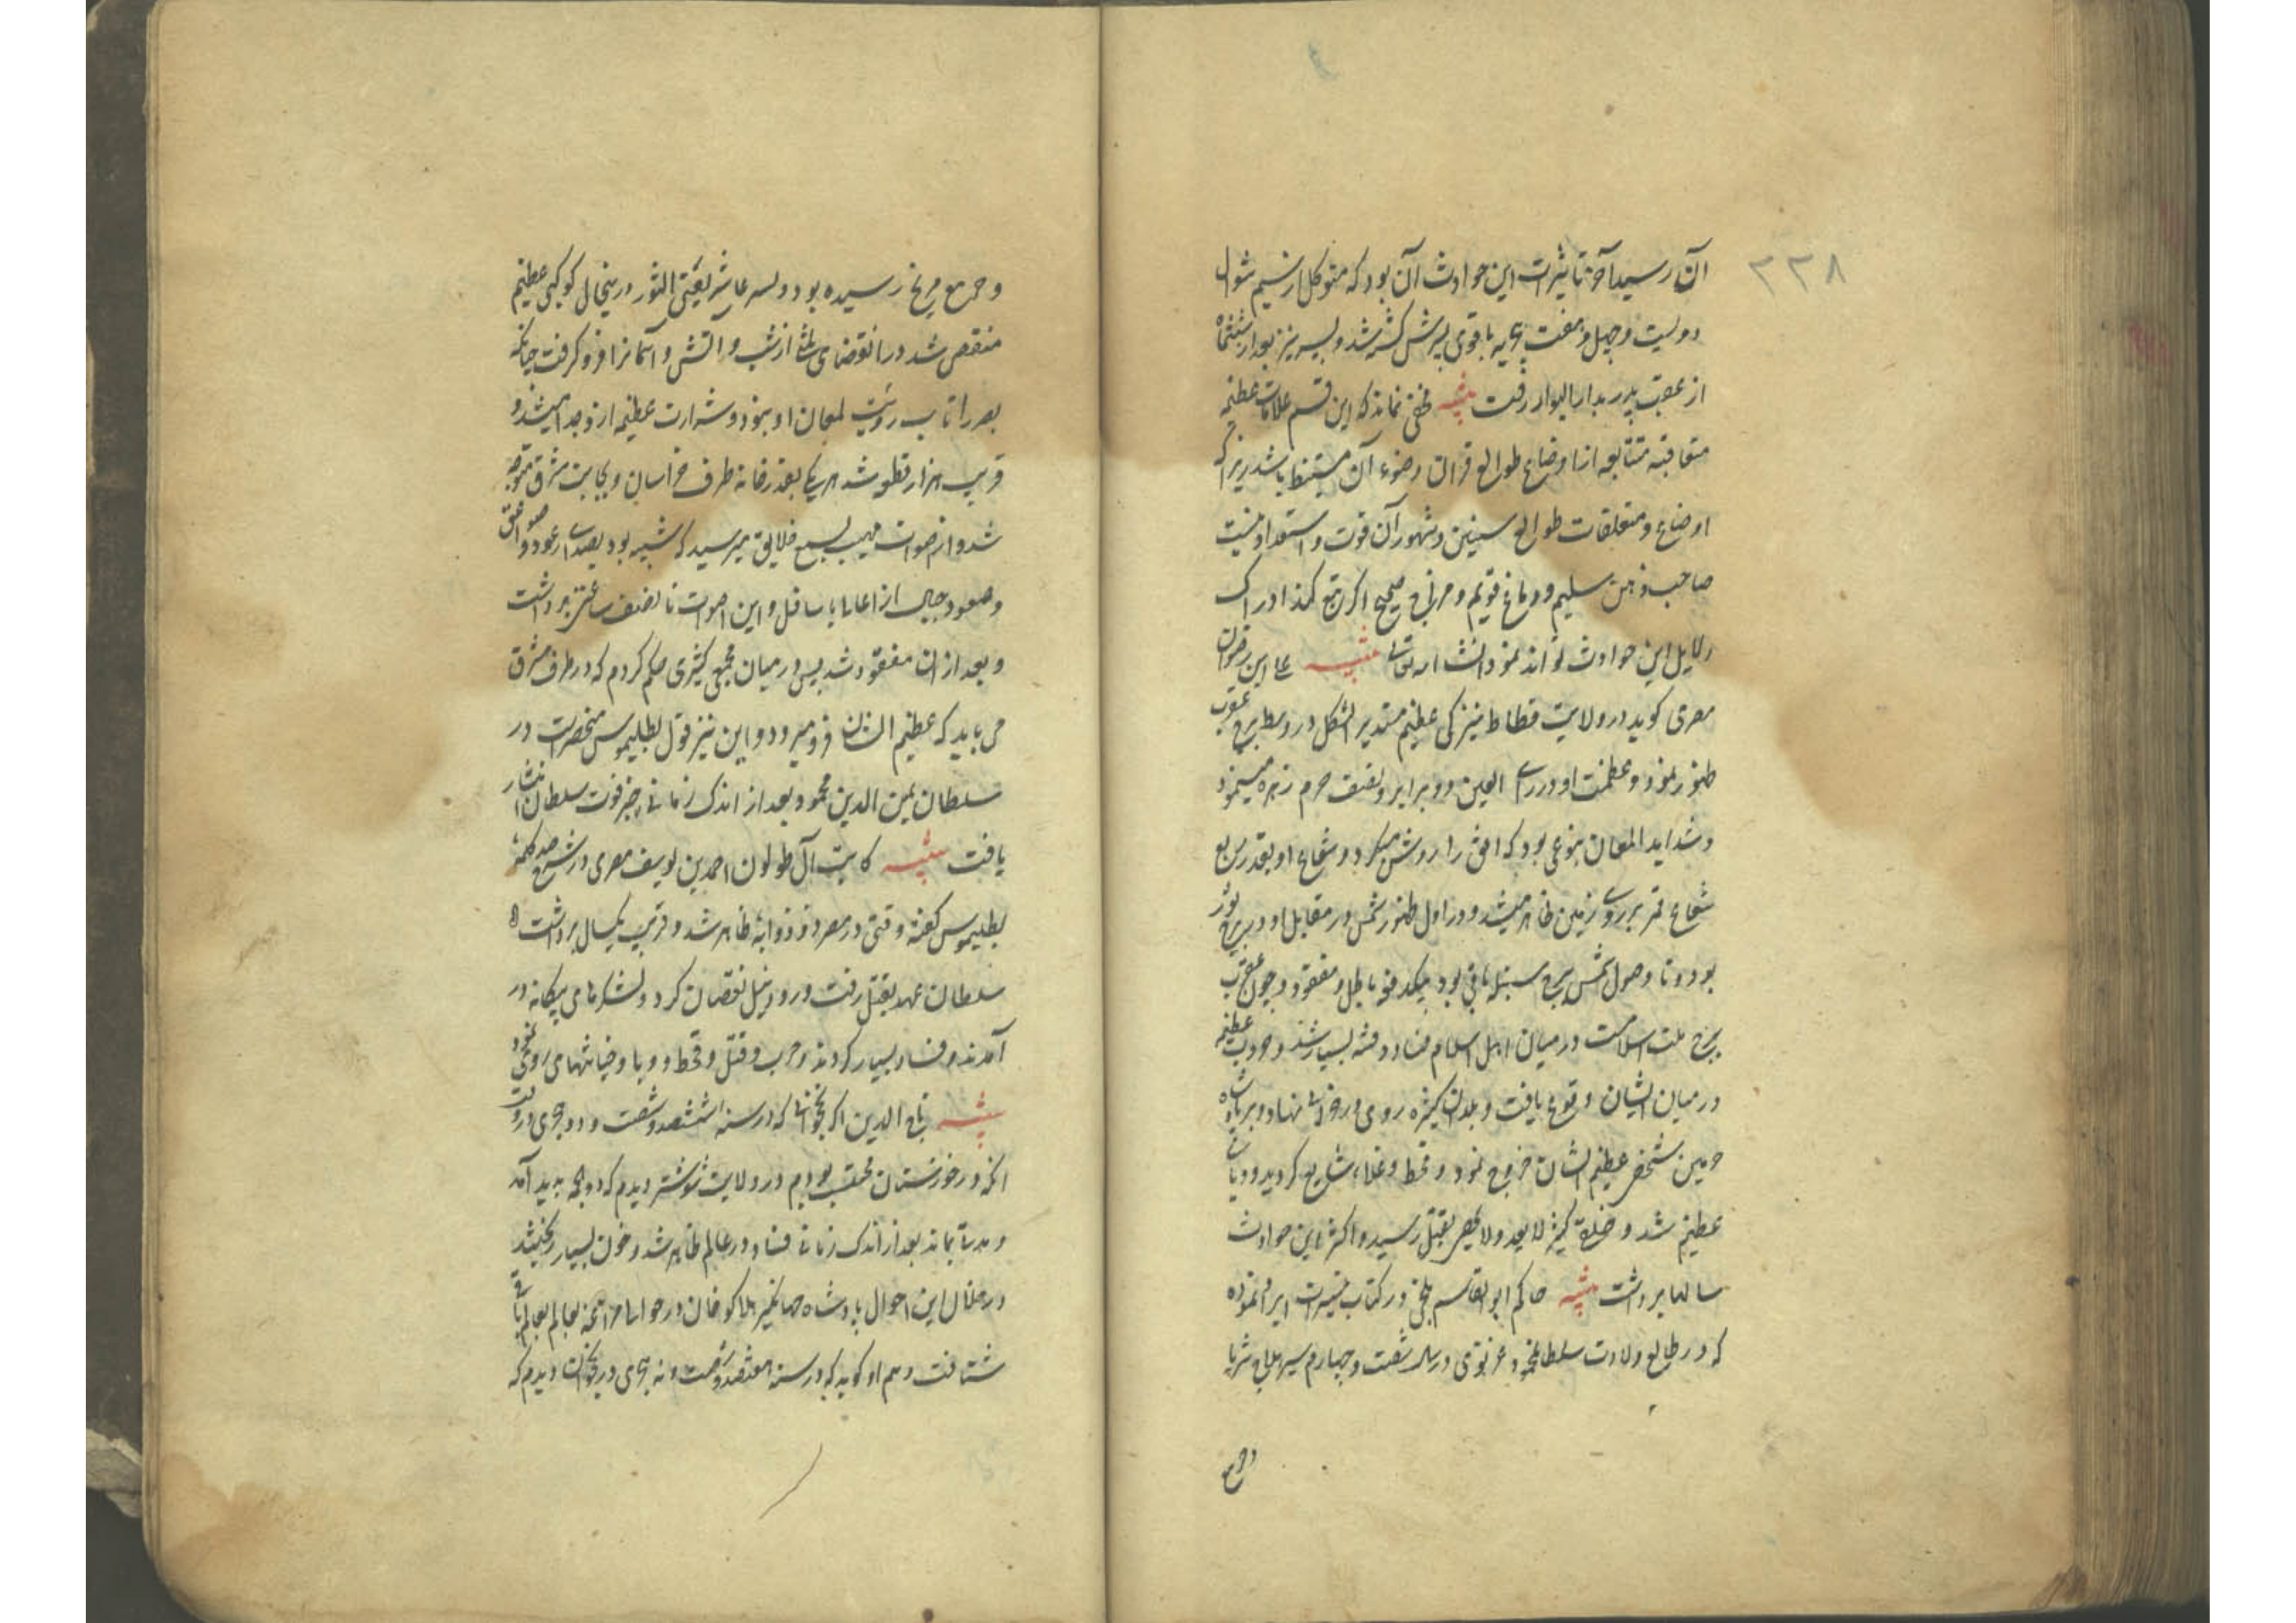 ۲۲۸
آن رسید آخر تاثیرات این حوادث آن بود که متوکل در سیم شوال
دویست و چهل و هفت هجریه باقوی پسرش کشته شد و پسر نیز بعد از ششماه
از عقب پدر بدار البوار رفت تنبیه مخفی نماند که این قسم علامات عظیمه
متعاقبه متتابعه از اوضاع طوالع قرانات وضوء آن مستنبط باشد زیرا که
اوضاع و متعلقات طوالع سنین و شهور آن قوت و استعداد نیست
صاحب ذهن سلیم و دماغ قویم و مزاج صحیح اگر تتبع کند ادراک
دلایل این حوادث تواند نمود انشاء الله تعالی تنبیه علی ابن رضوان
مصری کوید در ولایت فسطاط نیزکی عظیم مستدیر الشکل در وسط برج عقرب
ظهور نمود و عظمت او در رأی العین دو برابر و نصف جرم زهره مینمود
و شدید اللمعان بنوعی بود که افق را روشن میکرد و شعاع او بقدر ربع
شعاع قمر بر روی زمین ظاهر میشد و در اول ظهور شمس در مقابل او در برج ثور
بود و تا وصول شمس ببرج سنبله باقی بود یکدفعه باطل و مفقود و چون عقرب
برج ملت اسلامست در میان اهل اسلام فساد و فتنه بسیار شد و حروب عظیمه
در میان ایشان وقوع یافت و بلدان کثیره روی در خرابی نهاد و بر پادشاه
حرمین شخص عظیم الشان خروج نمود و قحط و غلاء شایع کردید و وبای
عظیم شد و خلق کثیر لایعد و لایحصی بقتل رسید و اکثر این حوادث
سالها برداشت تنبیه حاکم ابوالقاسم بلخی در کتاب تسییرات ایراد نموده
که در طالع ولادت سلطان محمود غزنوی در سال شصت و چهارم تسییر هیلاج ثریا
و جرم
و جرم مریخ رسیده بود و تسییر عاشر بعین الثور در ینحال کوکبی عظیم
منقض شد در انقضای ثلث از شب و آتش و آسمانرا فرو کرفت چنانکه
بصر را تاب رؤیت لمعان او نبود و شرارت عظیمه از وجدا میشد و
قریب هزار قطعه شد هر یکی بقدر خانه طرف خراسان و بجانب شرق متوجه
شد و از اصوات مهیب بسمع خلایق میرسید که شبیه بود بصدای رعود و صواعق
و صعود جبال از اعالی با سافل و این اصوات تا نصف ساعتی برداشت
و بعد از ان مفقود شد پس در میان مجمع کثیری حکم کردم که در طرف مشرق
می باید که عظیم الشان فرو میرود و این نیز قول بطلیموس منحصرست در
سلطان یمین الدین محمود بعد از اندک زمانی خبر فوت سلطان انتشار
یافت تنبیه کاتب آل طولون احمد بن یوسف مصری در شرح صد کلمه
بطلیموس کفته وقتی در مصر ذو ذوابه ظاهر شد و قریب یکسال برداشت
سلطان عهد بقتل رفت و رود نیل نقصان کرد و لشکرهای بیکانه در
آمدند و فساد بسیار کردند و حرب و قتل و قحط و وبا و خیانتهای روی نمود
تنبیه تاج الدین اکرم نخجوانی که در سنه ششصد و شصت و دو هجری در وقت
انکه در خوزستان محتسب بودم در ولایت شوشتر دیدم که ذوذوابه پدید آمد
و مدتی بماند بعد از اندک زمانی فساد در عالم ظاهر شد و خون بسیار ریخته شد
در خلال این احوال پادشاه جهانکیر هلاکو خان در حوالی مراغه بعالم باقی
شتافت و هم او کوید که در سنه ششصد و شصت و نه هجری در نخجوان دیدم که